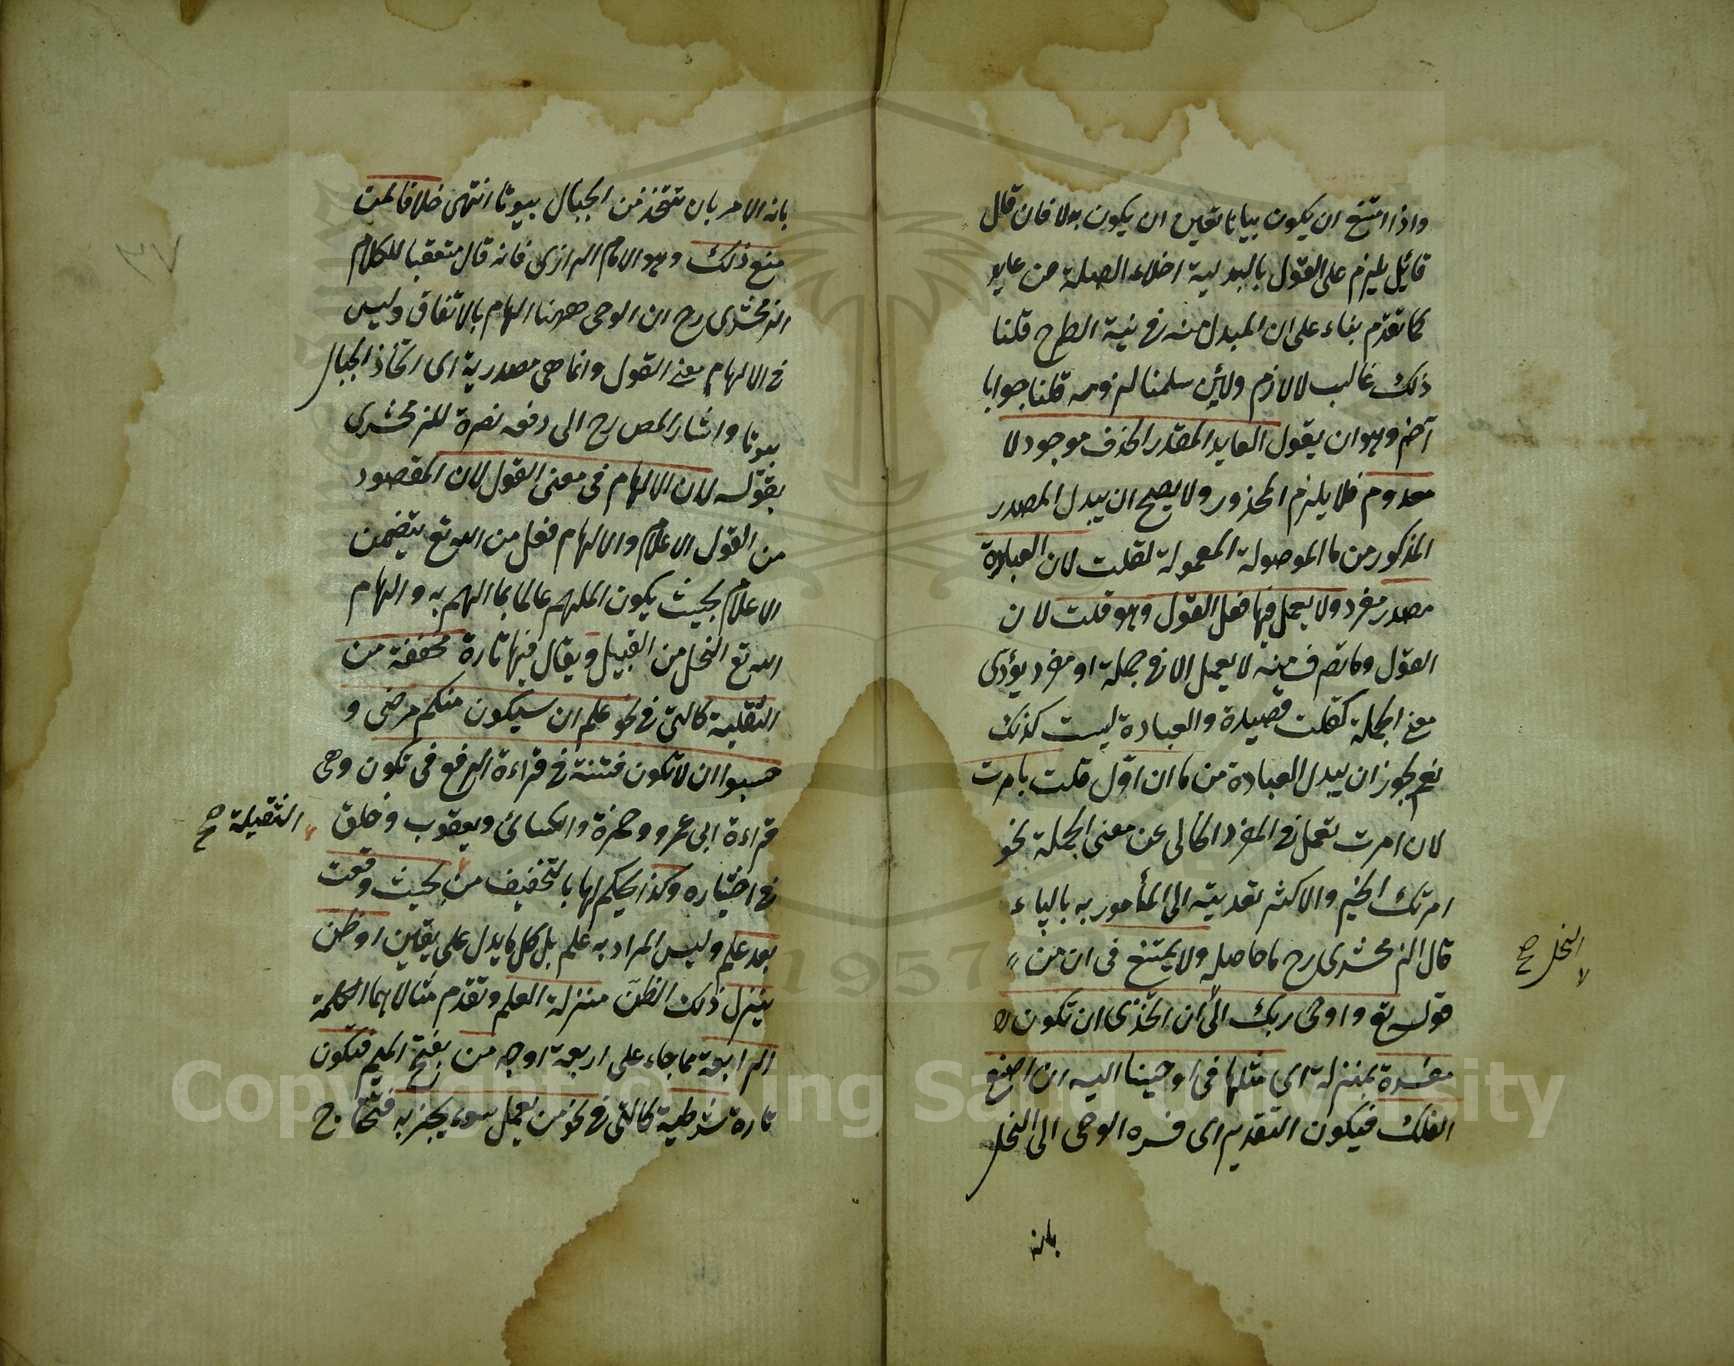 واذا امتنع ان يكون بيانا تعين ان يكون بدلا فان قال
قائل يلزم على القول بالبدلية اخلاء الصلة من عايد
كما تقدم بناء على ان المبدل منه فى نية الطرح قلنا
ذلك غالب لا لازم ولاين سلمنا لزومه قلنا جوابا
آخر وهو ان يقول العايد المقدر الحذف موجود لا
معدوم فلا يلزم المحذور ولا يصح ان يبدل المصدر
المذكور من ما الموصولة المعمولة لقلت لان العبادة
مصدر مفرد ولا يعمل فيها فعل القول وهو قلت لان
القول وما تصرف منه لا يعمل الا فى جملة او مفرد يؤدى
معنى الجملة كقلت قصيدة والعبادة ليست كذلك
نعم يجوز ان يبدل العبادة من ما ان اول قلت بامرت
لان امرت تعمل فى المفرد الخالى عن معنى الجملة نحو
امرتك الخير والاكثر تعديته الى المأمور به بالياء
قال الزمخشرى رح ما حاصله ولا يمتنع فى ان من
قوله تع واوحى ربك الى ان اتخذى ان تكون
مفسرة بمنزلة اى مثلها فى اوحينا اليه ان اصنع
الفلك فيكون التقدير اى فسره الوحى الى النحل
النحل صح
بانه
بانه الامر بان تتخذ من الجبال بيوتا انتهى خلافا لمن
منع ذلك وهو الامام الرازى فانه قال متعقبا للكلام
الزمخشرى رح ان الوحى ههنا الهام بالاتفاق وليس
فى الالهام معنى القول وانما هى مصدرية اى اتخاذ الجبال
بيوتا واشار المص رح الى دفعه نصرة للزمخشرى
بقوله لان الالهام فى معنى القول لان المقصود
من القول الاعلام والالهام فعل من الله تع يتضمن
الاعلام بحيث يكون الملهم عالما بما الهم به والهام
الله تع النحل من القبيل ويقال فيها تارة مخففة من
الثقلية كالتى فى نحو علم ان سيكون منكم مرضى و
حسبوا ان لا تكون فتنة فى قراءة الرفع فى تكون وهى
قراءة ابى عمرو وحمزة والكسائى ويعقوب وخلق
الثقيلة صح
فى اختياره وكذا يحكم لها بالتخفيف من بحيث وقعت
بعد علم وليس المراد به علم بل كل ما يدل على يقين او ظن
ينزل ذلك الظن منزلة العلم وتقدم مثالاهما الكلمة
الرابعة مما جاء على اربعة اوجه من بفتح الميم فتكون
تارة شرطية كالتى فى نحو من يعمل سوء يجز به
Copyright © King Saud University
1957